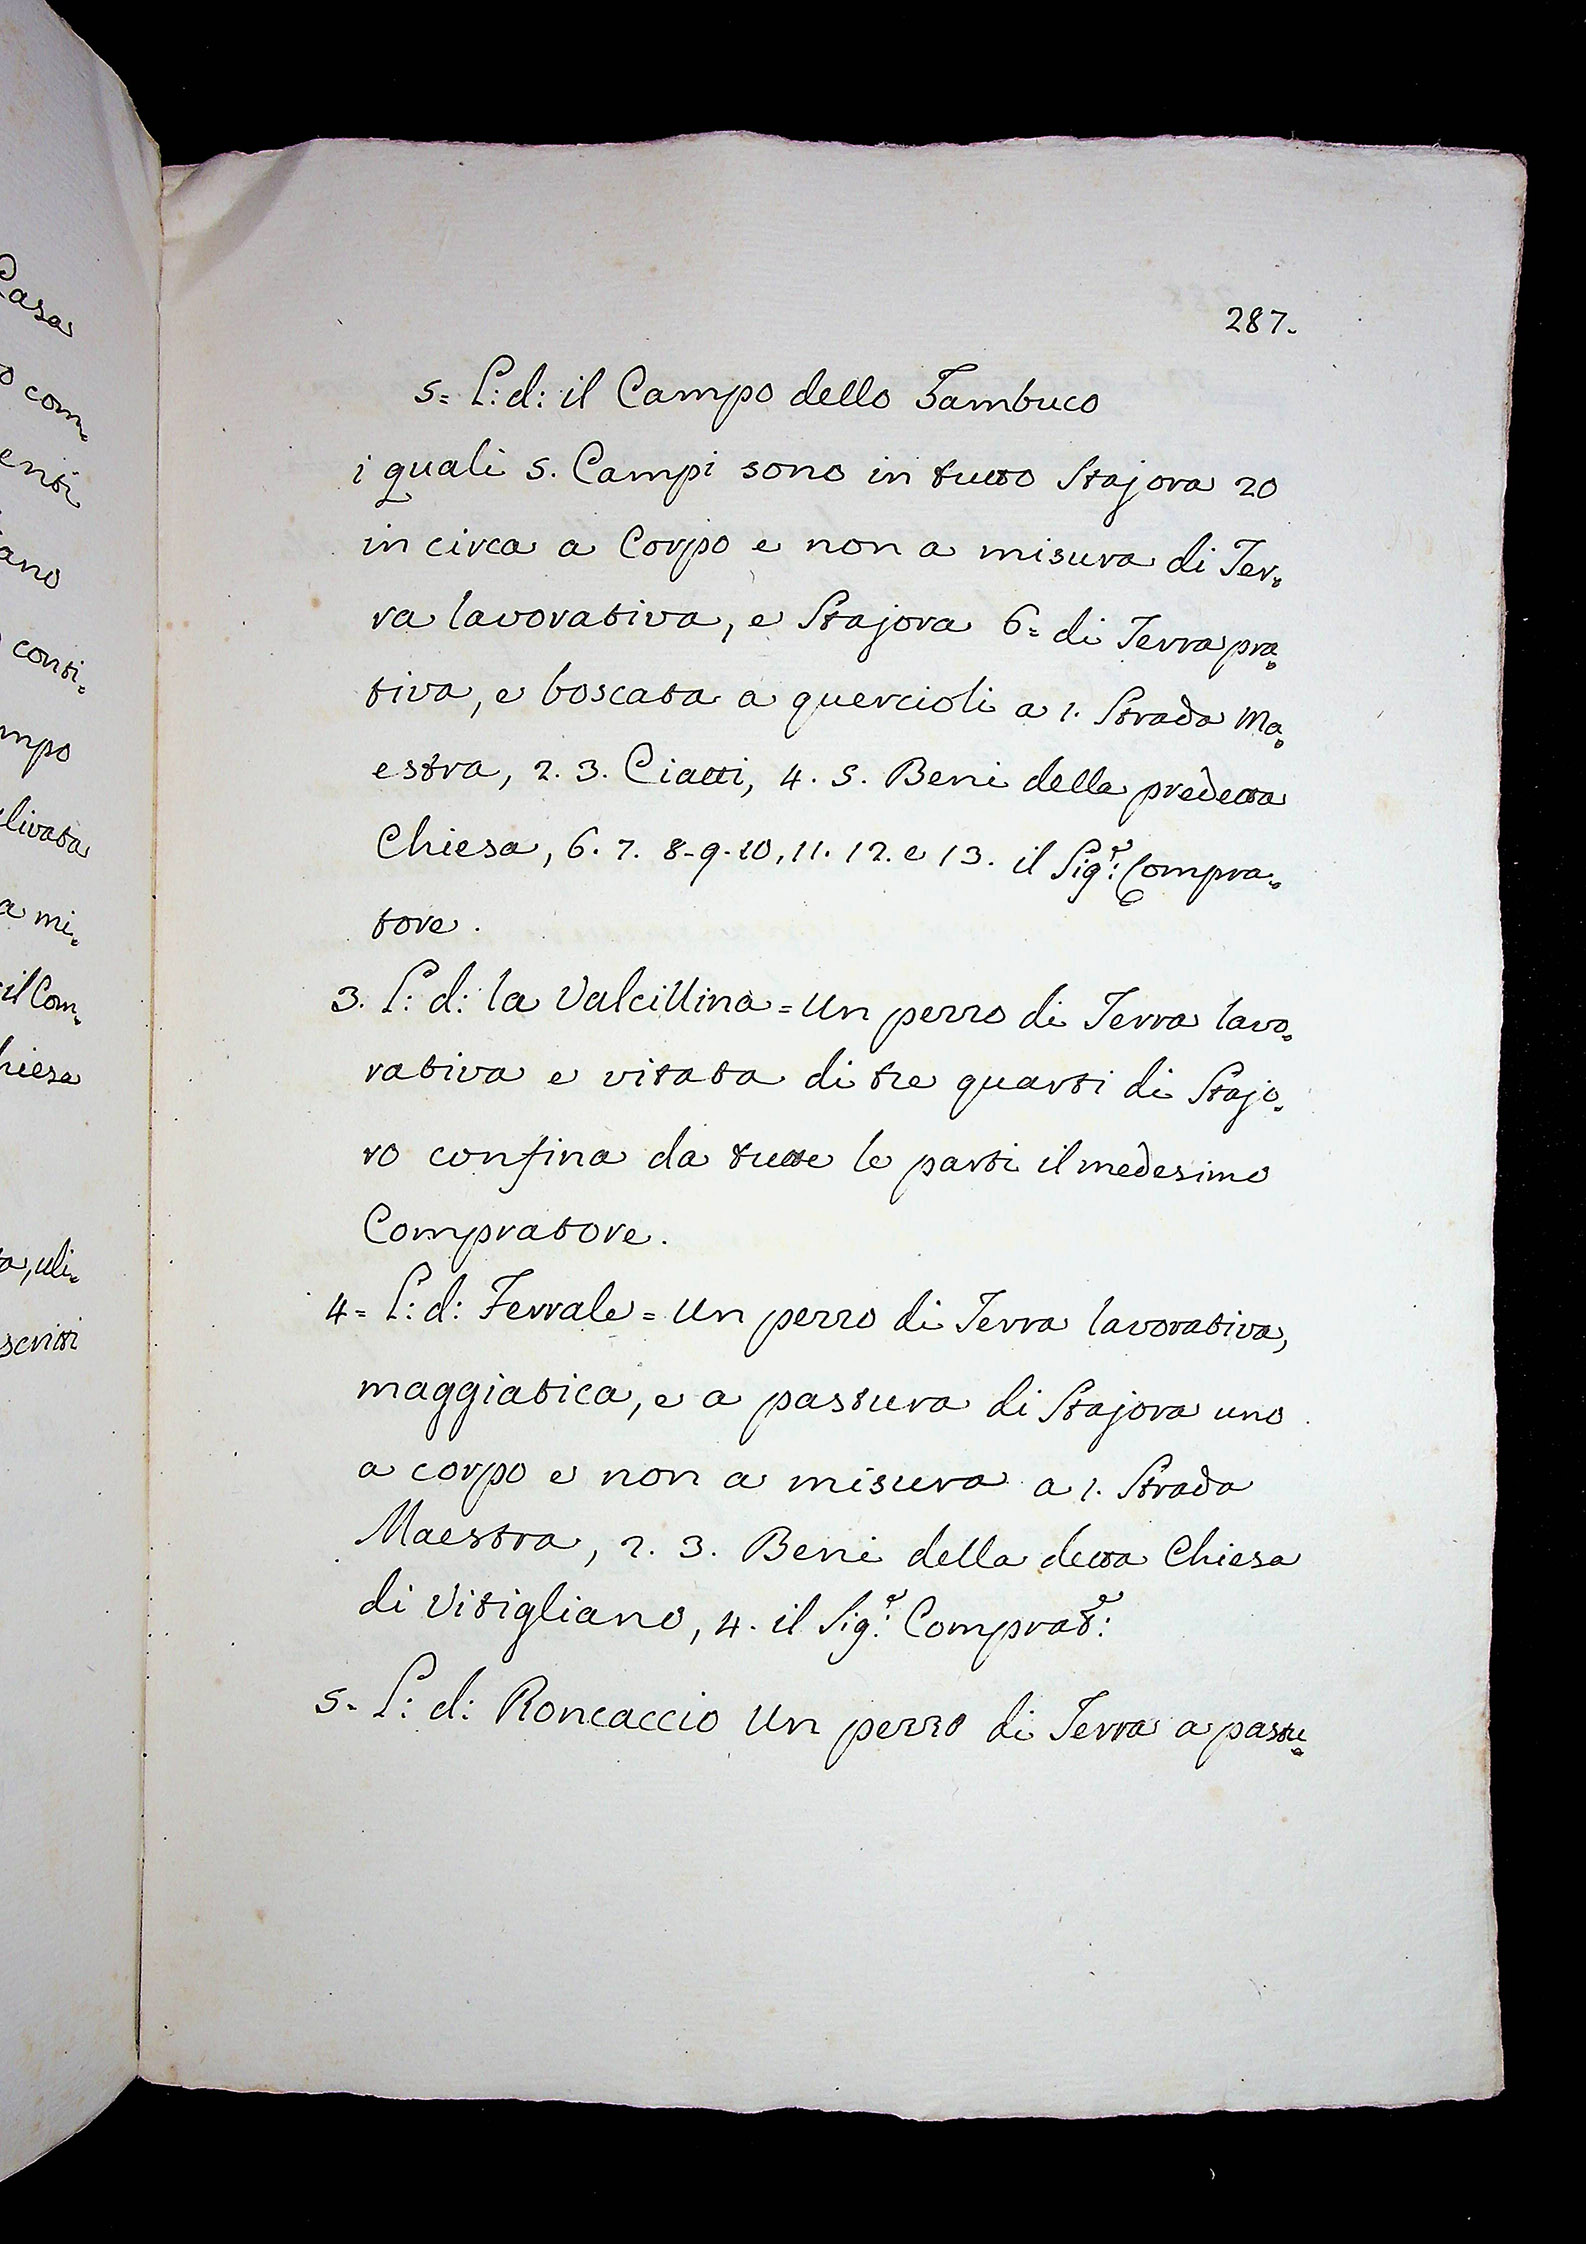 Casa
o com=
enti
iano
conti=
mpo
livata
a mi=
il Com=
hiesa
a, uli=
scritti
287.
5= L: d: il Campo dello Zambuco
i quali 5. Campi sono in tutto Stajora 20
in circa a Corpo e non a misura di Ter=
ra lavorativa, e Stajora 6= di Terra pra=
tiva, e boscata a quercioli a 1. Strada Ma=
estra, 2. 3. Ciatti, 4. 5. Beni della predetta
Chiesa, 6. 7. 8. 9. 10, 11. 12. e 13. il Sigr: Compra=
tore.
3. L: d: la Valcillina = Un pezzo di Terra lavo=
rativa e vitata di tre quarti di Stajo=
ro confina da tutte le parti il medesimo
Compratore.
4= L: d: Ferrale = Un pezzo di Terra lavorativa,
maggiatica, e a pastura di Stajora uno
a corpo e non a misura a 1. Strada
Maestra, 2. 3. Beni della detta Chiesa
di Vitigliano, 4. il Sigr: Comprate:
5= L: d: Roncaccio Un pezzo di Terra a pastu=